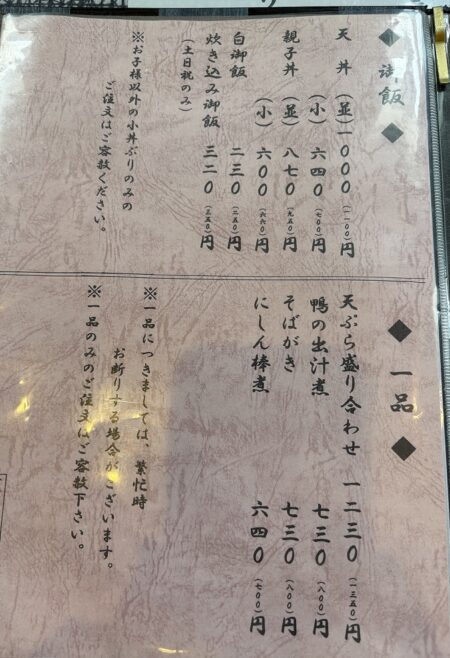 ◆ 御飯 ◆
天丼 (並) 一〇〇〇 (一一〇〇) 円
(小) 六四〇 (七〇〇) 円
親子丼 (並) 八七〇 (九五〇) 円
(小) 六〇〇 (六六〇) 円
白御飯 二三〇 (二五〇) 円
炊き込み御飯 三二〇 (三五〇) 円
(土日祝のみ)
※お子様以外の小丼ぶりのみの
ご注文はご容赦ください。
◆ 一品 ◆
天ぷら盛り合わせ 一二三〇 (一三五〇) 円
鴨の出汁煮 七三〇 (八〇〇) 円
そばがき 七三〇 (八〇〇) 円
にしん棒煮 六四〇 (七〇〇) 円
※一品につきましては、繁忙時
お断りする場合がございます。
※一品のみのご注文はご容赦下さい。